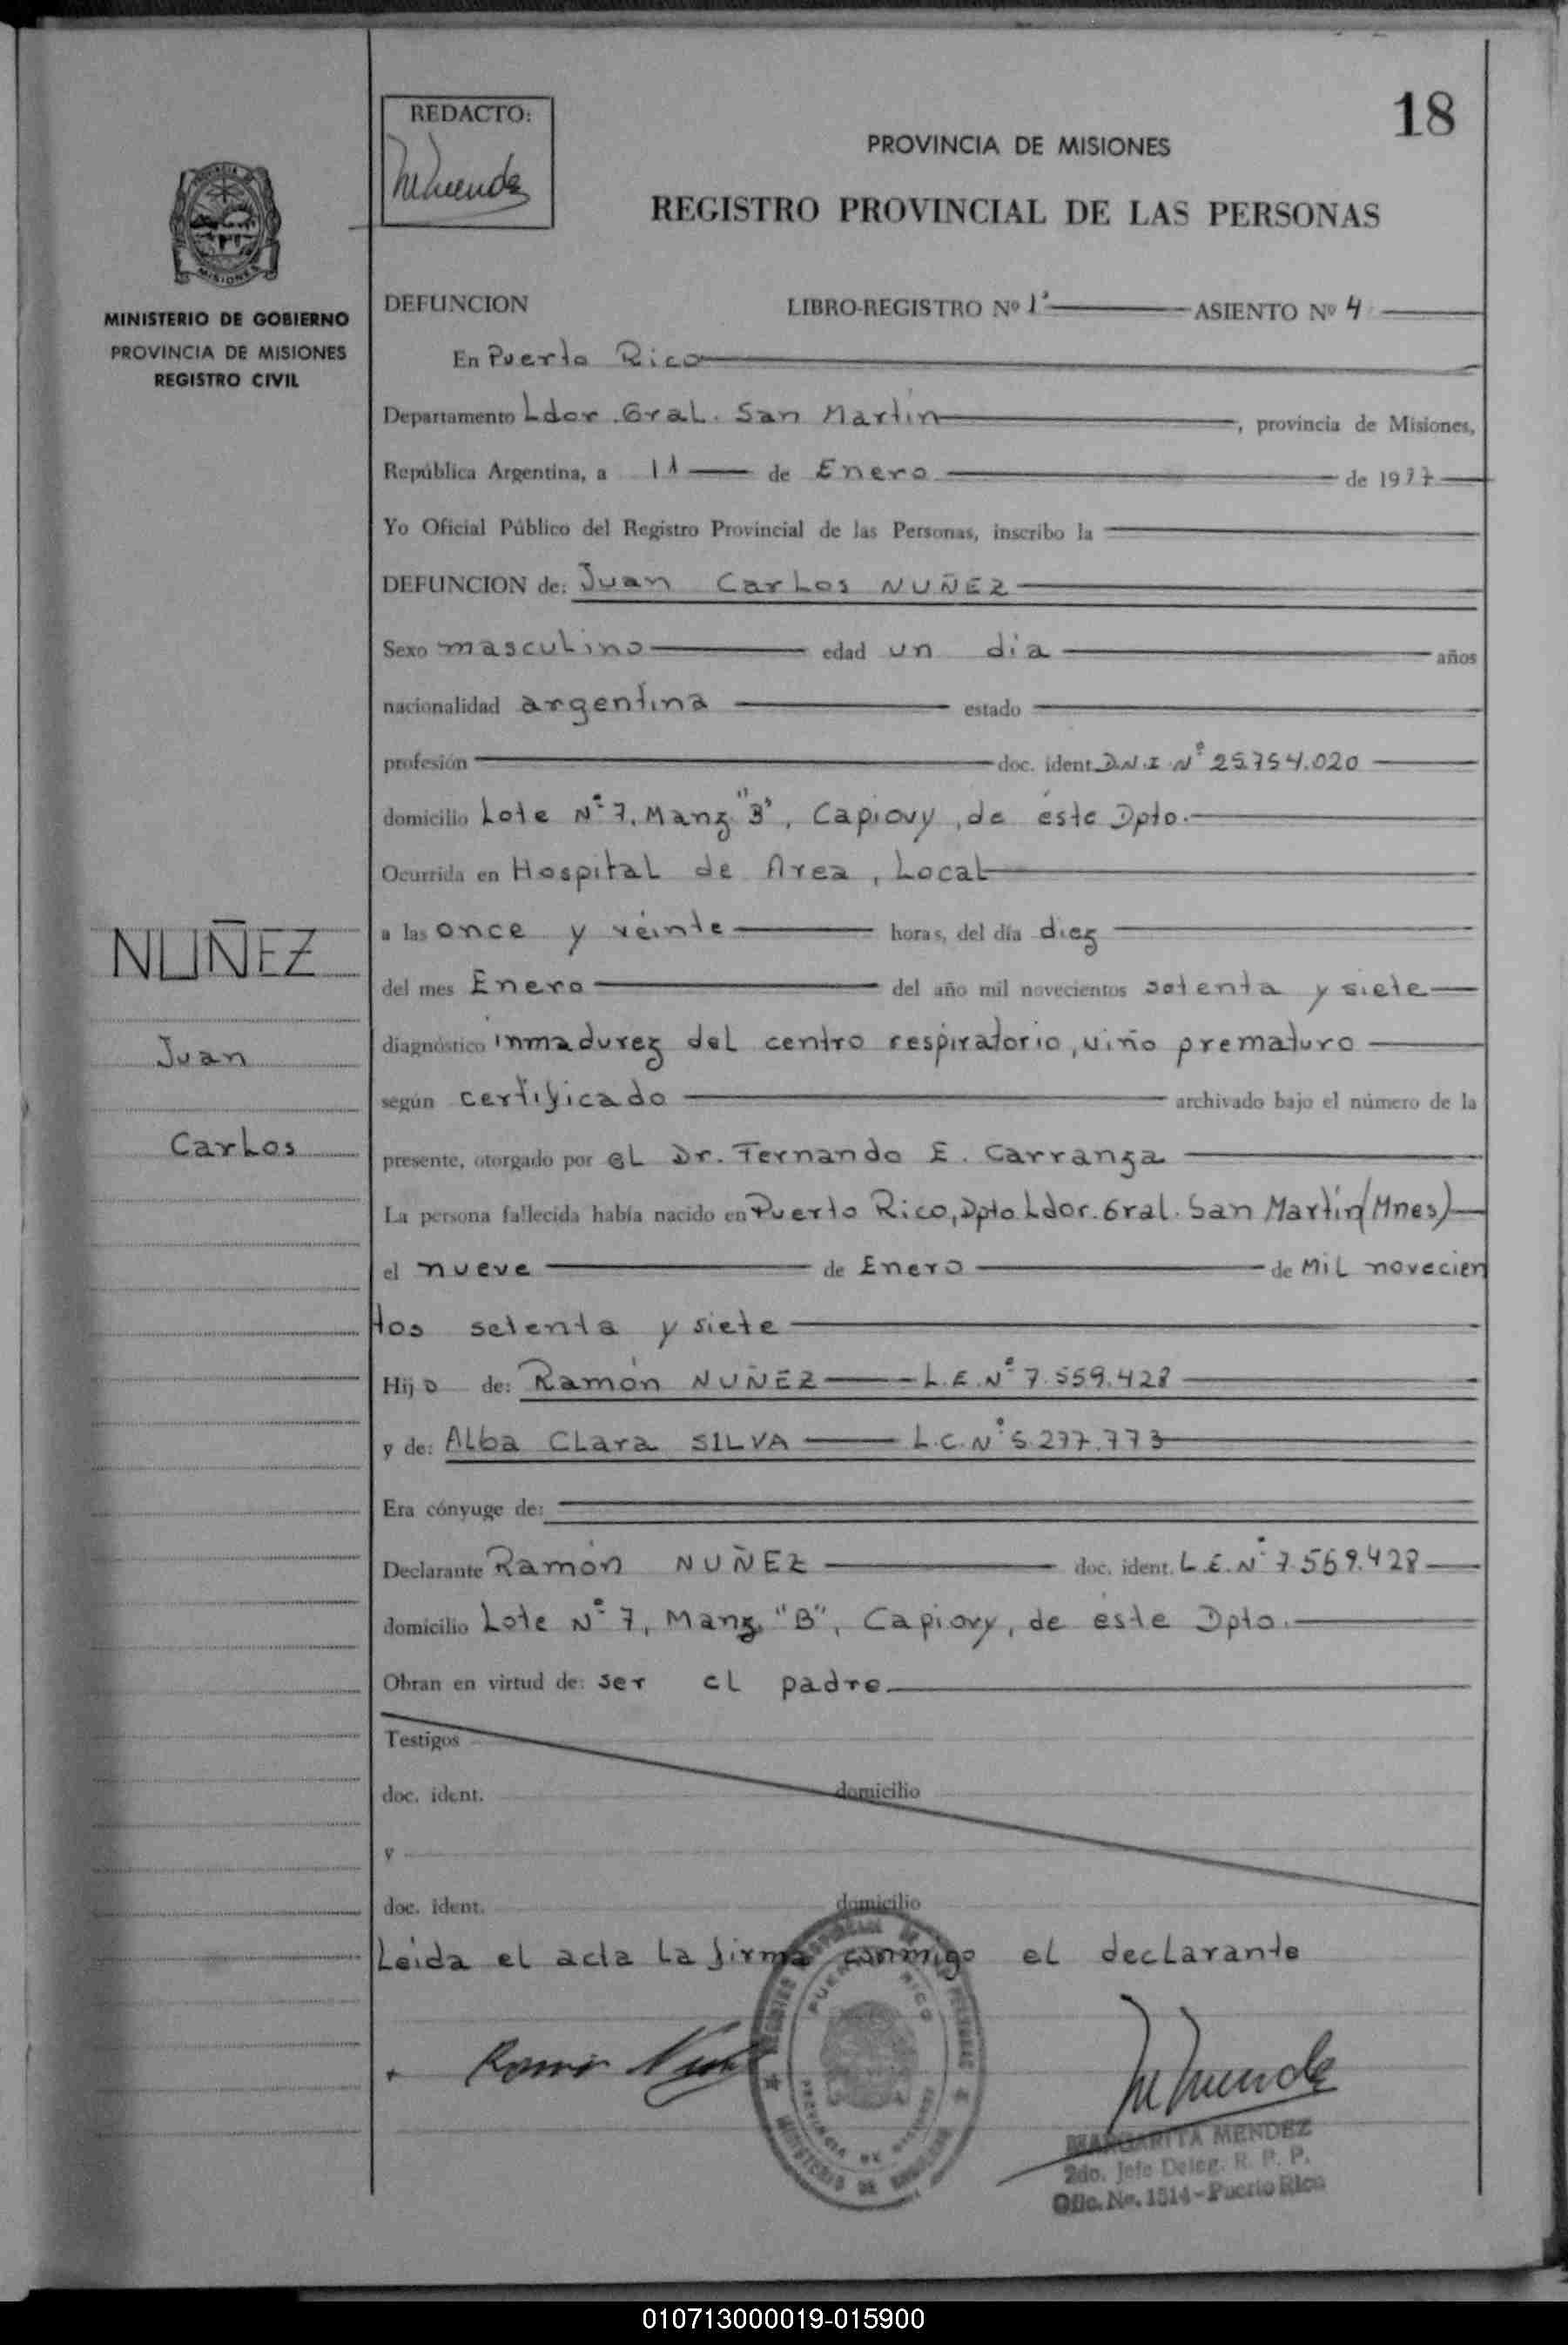 18
REDACTO:
PROVINCIA DE MISIONES
REGISTRO PROVINCIAL DE LAS PERSONAS
MISIONES
MINISTERIO DE GOBIERNO
PROVINCIA DE MISIONES
REGISTRO CIVIL
DEFUNCION LIBRO-REGISTRO Nº 1º ASIENTO Nº 4
En Puerto Rico
Departamento Ldor. Gral. San Martin, provincia de Misiones,
República Argentina, a 11 de Enero de 1977
Yo Oficial Público del Registro Provincial de las Personas, inscribo la
DEFUNCION de: Juan Carlos NUÑEZ
Sexo masculino edad un día años
nacionalidad argentina estado
profesión doc. ident. D.N.I. Nº 25.754.020
domicilio Lote Nº 7, Manz "B", Capiovy, de éste Dpto.
Ocurrida en Hospital de Area, Local
a las once y veinte horas, del día diez
del mes Enero del año mil novecientos setenta y siete
diagnóstico inmadurez del centro respiratorio, niño prematuro
según certificado archivado bajo el número de la
presente, otorgado por el Dr. Fernando E. Carranza
La persona fallecida había nacido en Puerto Rico, Dpto Ldor. Gral. San Martín (Mnes)
el nueve de Enero de Mil novecien
tos setenta y siete
Hijo de: Ramón NUÑEZ L.E. Nº 7.559.428
y de: Alba Clara SILVA L.C. Nº 5.277.773
Era cónyuge de:
Declarante Ramón NUÑEZ doc. ident. L.E. Nº 7.559.428
domicilio Lote Nº 7, Manz, "B", Capiovy, de éste Dpto.
Obran en virtud de: ser el padre
Testigos
doc. ident. domicilio
y
doc. ident. domicilio
Leída el acta la firma conmigo el declarante
NUÑEZ
Juan
Carlos
PUERTO RICO
PROVINCIA DE MISIONES
MINISTERIO DE GOBIERNO
MARGARITA MENDEZ
2do. Jefe Deleg. R. P. P.
Ofic. No. 1514 - Puerto Rico
010713000019-015900